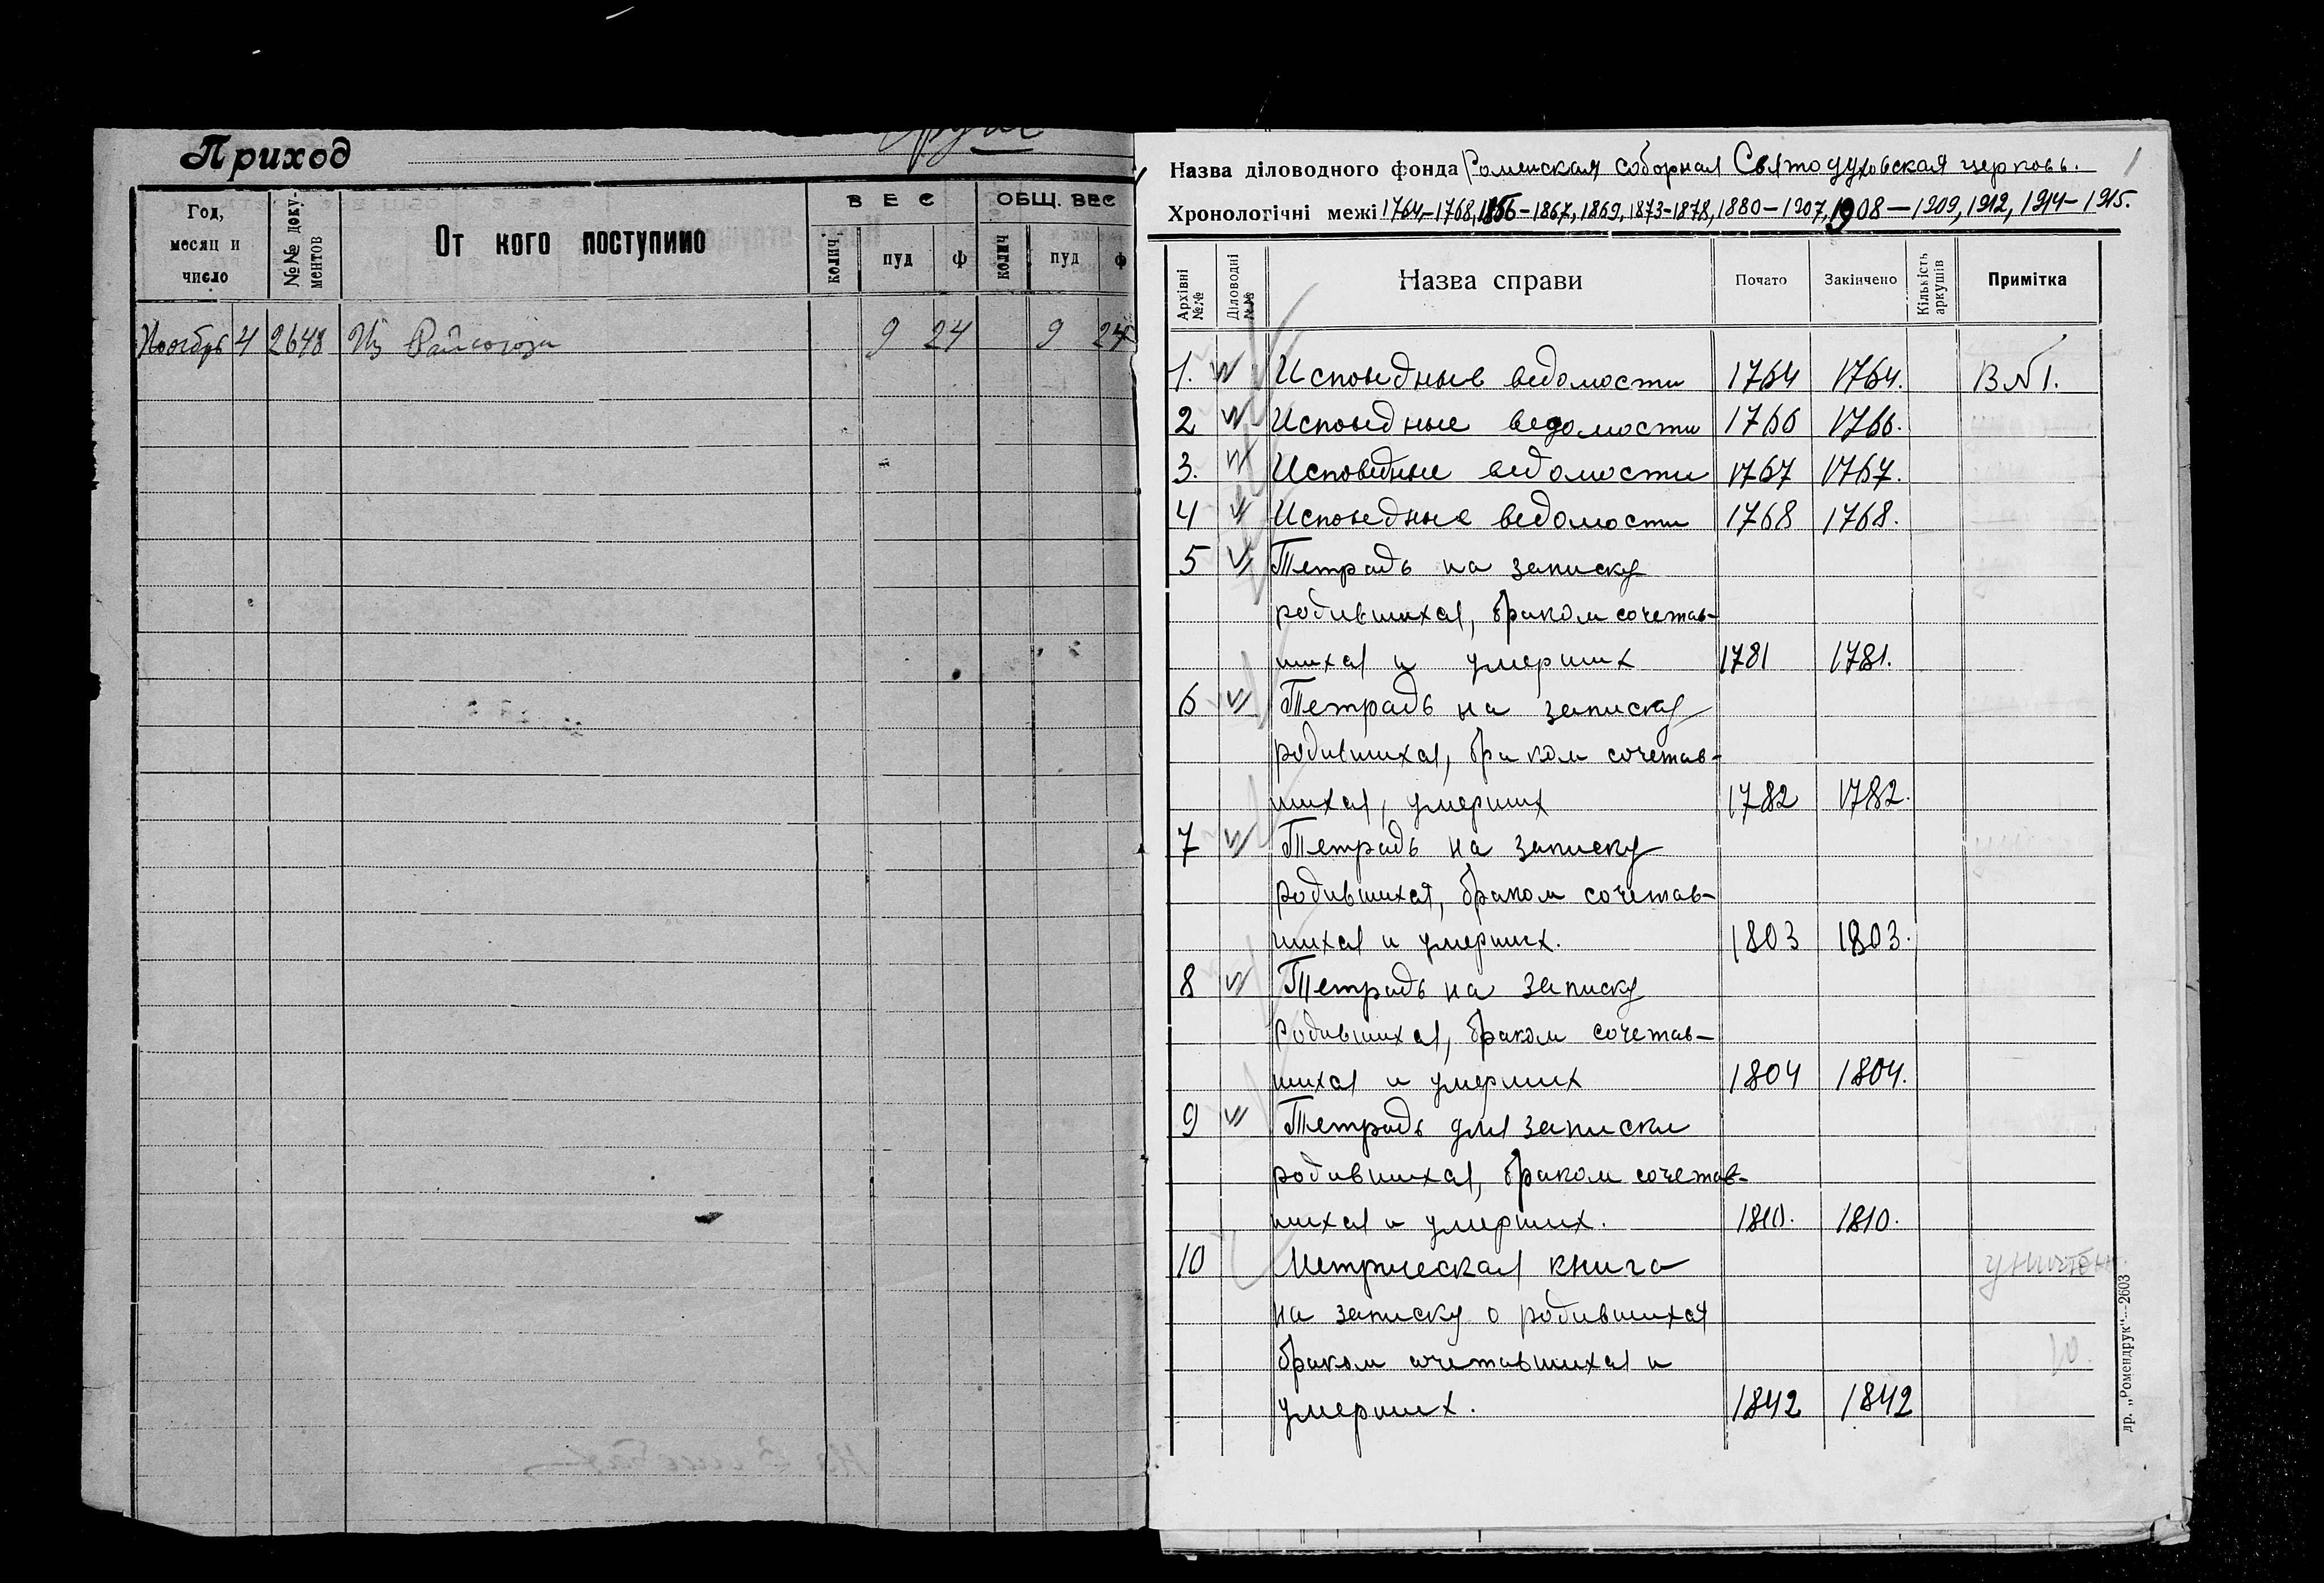 Приход
Год, месяц и число
№№ документов
От кого поступило
ВЕС
ОБЩ. ВЕС
колич.
пуд
ф
колич
пуд
ф
Ноябрь 4 2648 Из Райсоюза 9 24 9 24
Назва діловодного фонда Роменская соборная Святодуховская церковь. 1
Хронологічні межі 1764–1768, 1856–1867, 1869, 1873–1878, 1880–1907, 1908–1909, 1912, 1914–1915.
Архівні №№
Діловодні №№
Назва справи
Почато
Закінчено
Кількість аркушів
Примітка
1. Исповедные ведомости 1764 1764. В №1.
2 Исповедные ведомости 1766 1766.
3. Исповедные ведомости 1767 1767.
4 Исповедные ведомости 1768 1768.
5 Тетрадь на записку
родившихся, браком сочетав-
шихся и умерших 1781 1781.
6 Тетрадь на записку
родившихся, браком сочетав-
шихся, умерших 1782 1782.
7 Тетрадь на записку
родившихся, браком сочетав-
шихся и умерших. 1803 1803.
8 Тетрадь на записку
родившихся, браком сочетав-
шихся и умерших 1804 1804.
9 Тетрадь для записки
родившихся, браком сочетав-
шихся и умерших. 1810. 1810.
10 Метрическая книга
на записку о родившихся
браком сочетавшихся и
умерших. 1842 1842
10.
др. „Ромендрук“—2603